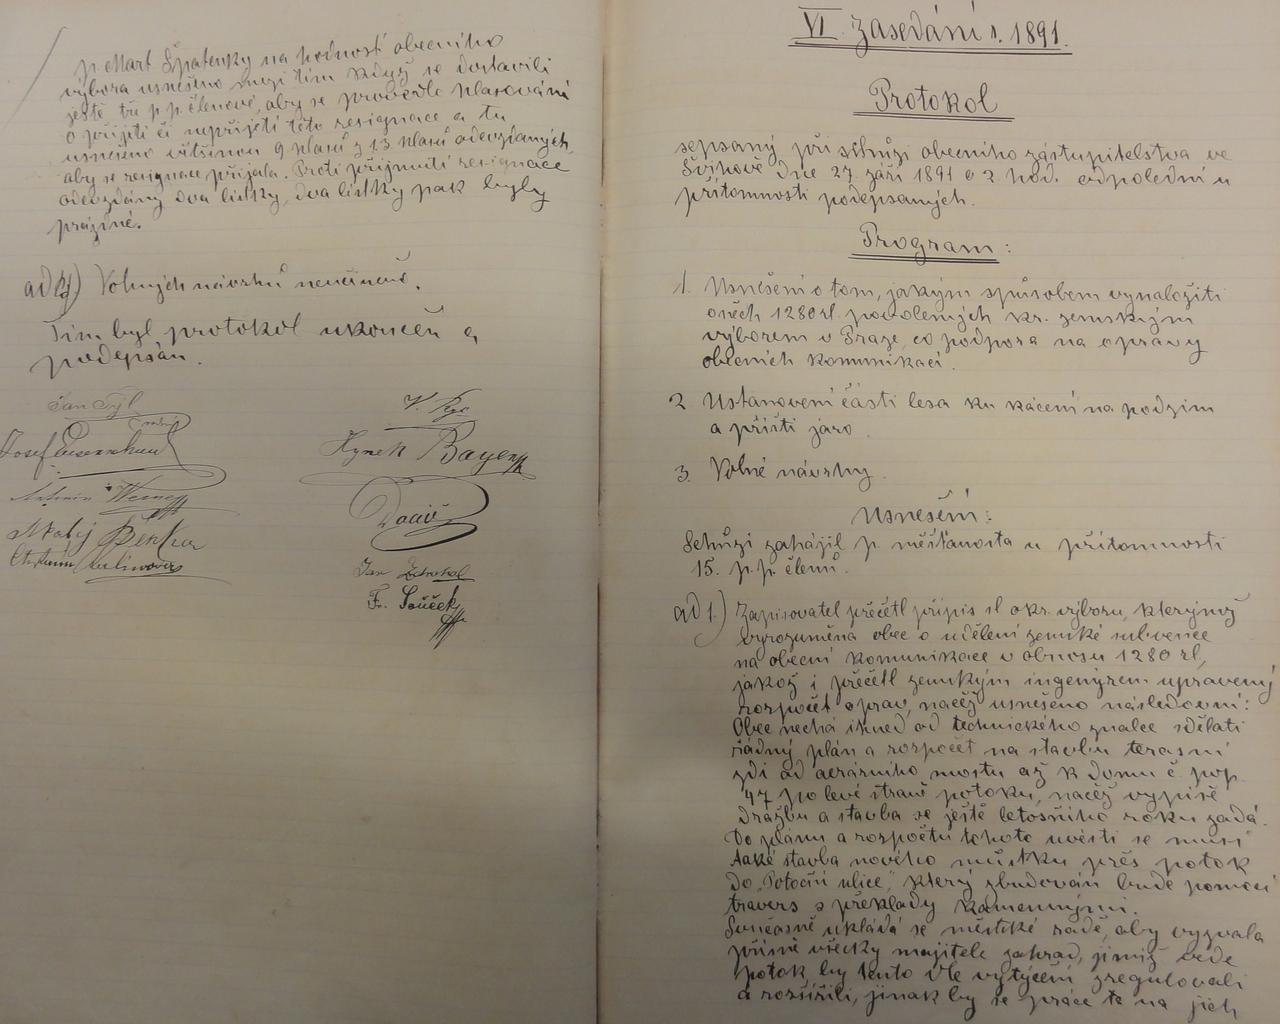 p. Mart. Špatenky na hodnost obecního
výbora usnešeno mezi tím když se dostavili
ještě tři p.p. členové, aby se provedlo hlasování
o přijetí či nepřijetí této resignace a tu
usnešeno většinou 9 hlasů z 13 hlasů odevzdaných,
aby se resignace přijala. Proti přijmutí resignace
odevzdány dva lístky, dva lístky pak byly
prázdné.
ad 4) Volných návrhů nečiněno.
Tím byl protokol ukončen a
podepsán.
Jan Týl
Josef
Antonín Werner
Matěj Šenkar
V.
Hynek Bayer
Dačič
Jan Zdrohal
Fr. Souček
VI. Zasedání r. 1891.
Protokol
sepsaný při schůzi obecního zástupitelstva ve
Švihově dne 27. září 1891 o 2 hod. odpolední u
přítomnosti podepsaných.
Program:
1. Usnešení o tom, jakým způsobem vynaložiti
oněch 1280 zl. povolených kr. zemským
výborem v Praze, co podpora na opravy
obecních komunikací.
2 Ustanovení části lesa ku kácení na podzim
a příští jaro.
3. Volné návrhy.
Usnešení:
Schůzi zahájil p. měšťanosta u přítomnosti
15. p.p. členů.
ad 1.) Zapisovatel přečetl přípis sl. okr. výboru, kterýmž
vyrozuměna obec o udělení zemské subvence
na obecní komunikace v obnosu 1280 zl,
jakož i přečetl zemským ingenýrem upravený
rozpočet oprav, načež usnešeno následovní:
Obec nechá ihned od technického znalce sdělati
řádný plán a rozpočet na stavbu terasní
zdi od aerárního mostu až k domu č. pop.
47 po levé straně potoku, načež vypíše
dražbu a stavba se ještě letošního roku zadá.
Do plánu a rozpočtu tohoto uvésti se musí
také stavba nového můstku přes potok
do „Potoční ulice", který zbudován bude pomocí
travers s překlady kamennými.
Současně ukládá se městské radě, aby vyzvala
přísně všecky majitele zahrad, jimiž vede
potok, by tento dle vytýčení zregulovali
a rozšířili, jinak by se práce ta na jich